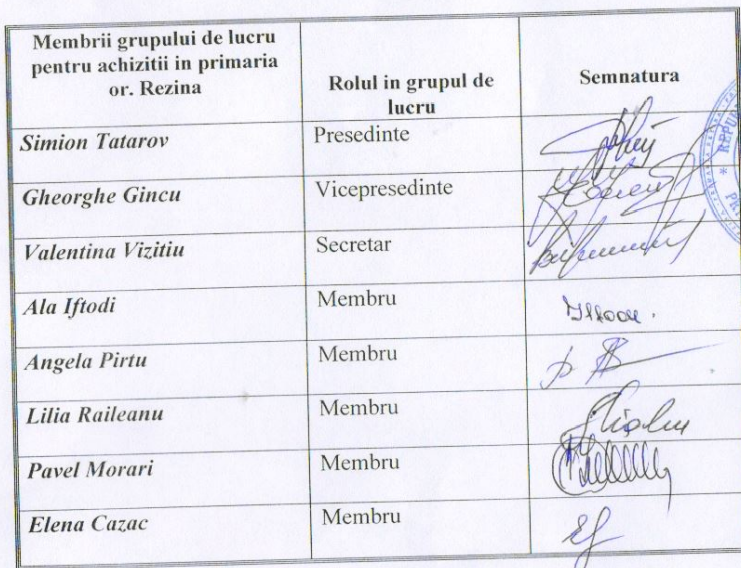 Membrii grupului de lucru
pentru achizitii in primaria
or. Rezina
Rolul in grupul de
lucru
Semnatura
Simion Tatarov
Presedinte
Gheorghe Gincu
Vicepresedinte
Valentina Vizitiu
Secretar
Ala Iftodi
Membru
Angela Pirtu
Membru
Lilia Raileanu
Membru
Pavel Morari
Membru
Elena Cazac
Membru